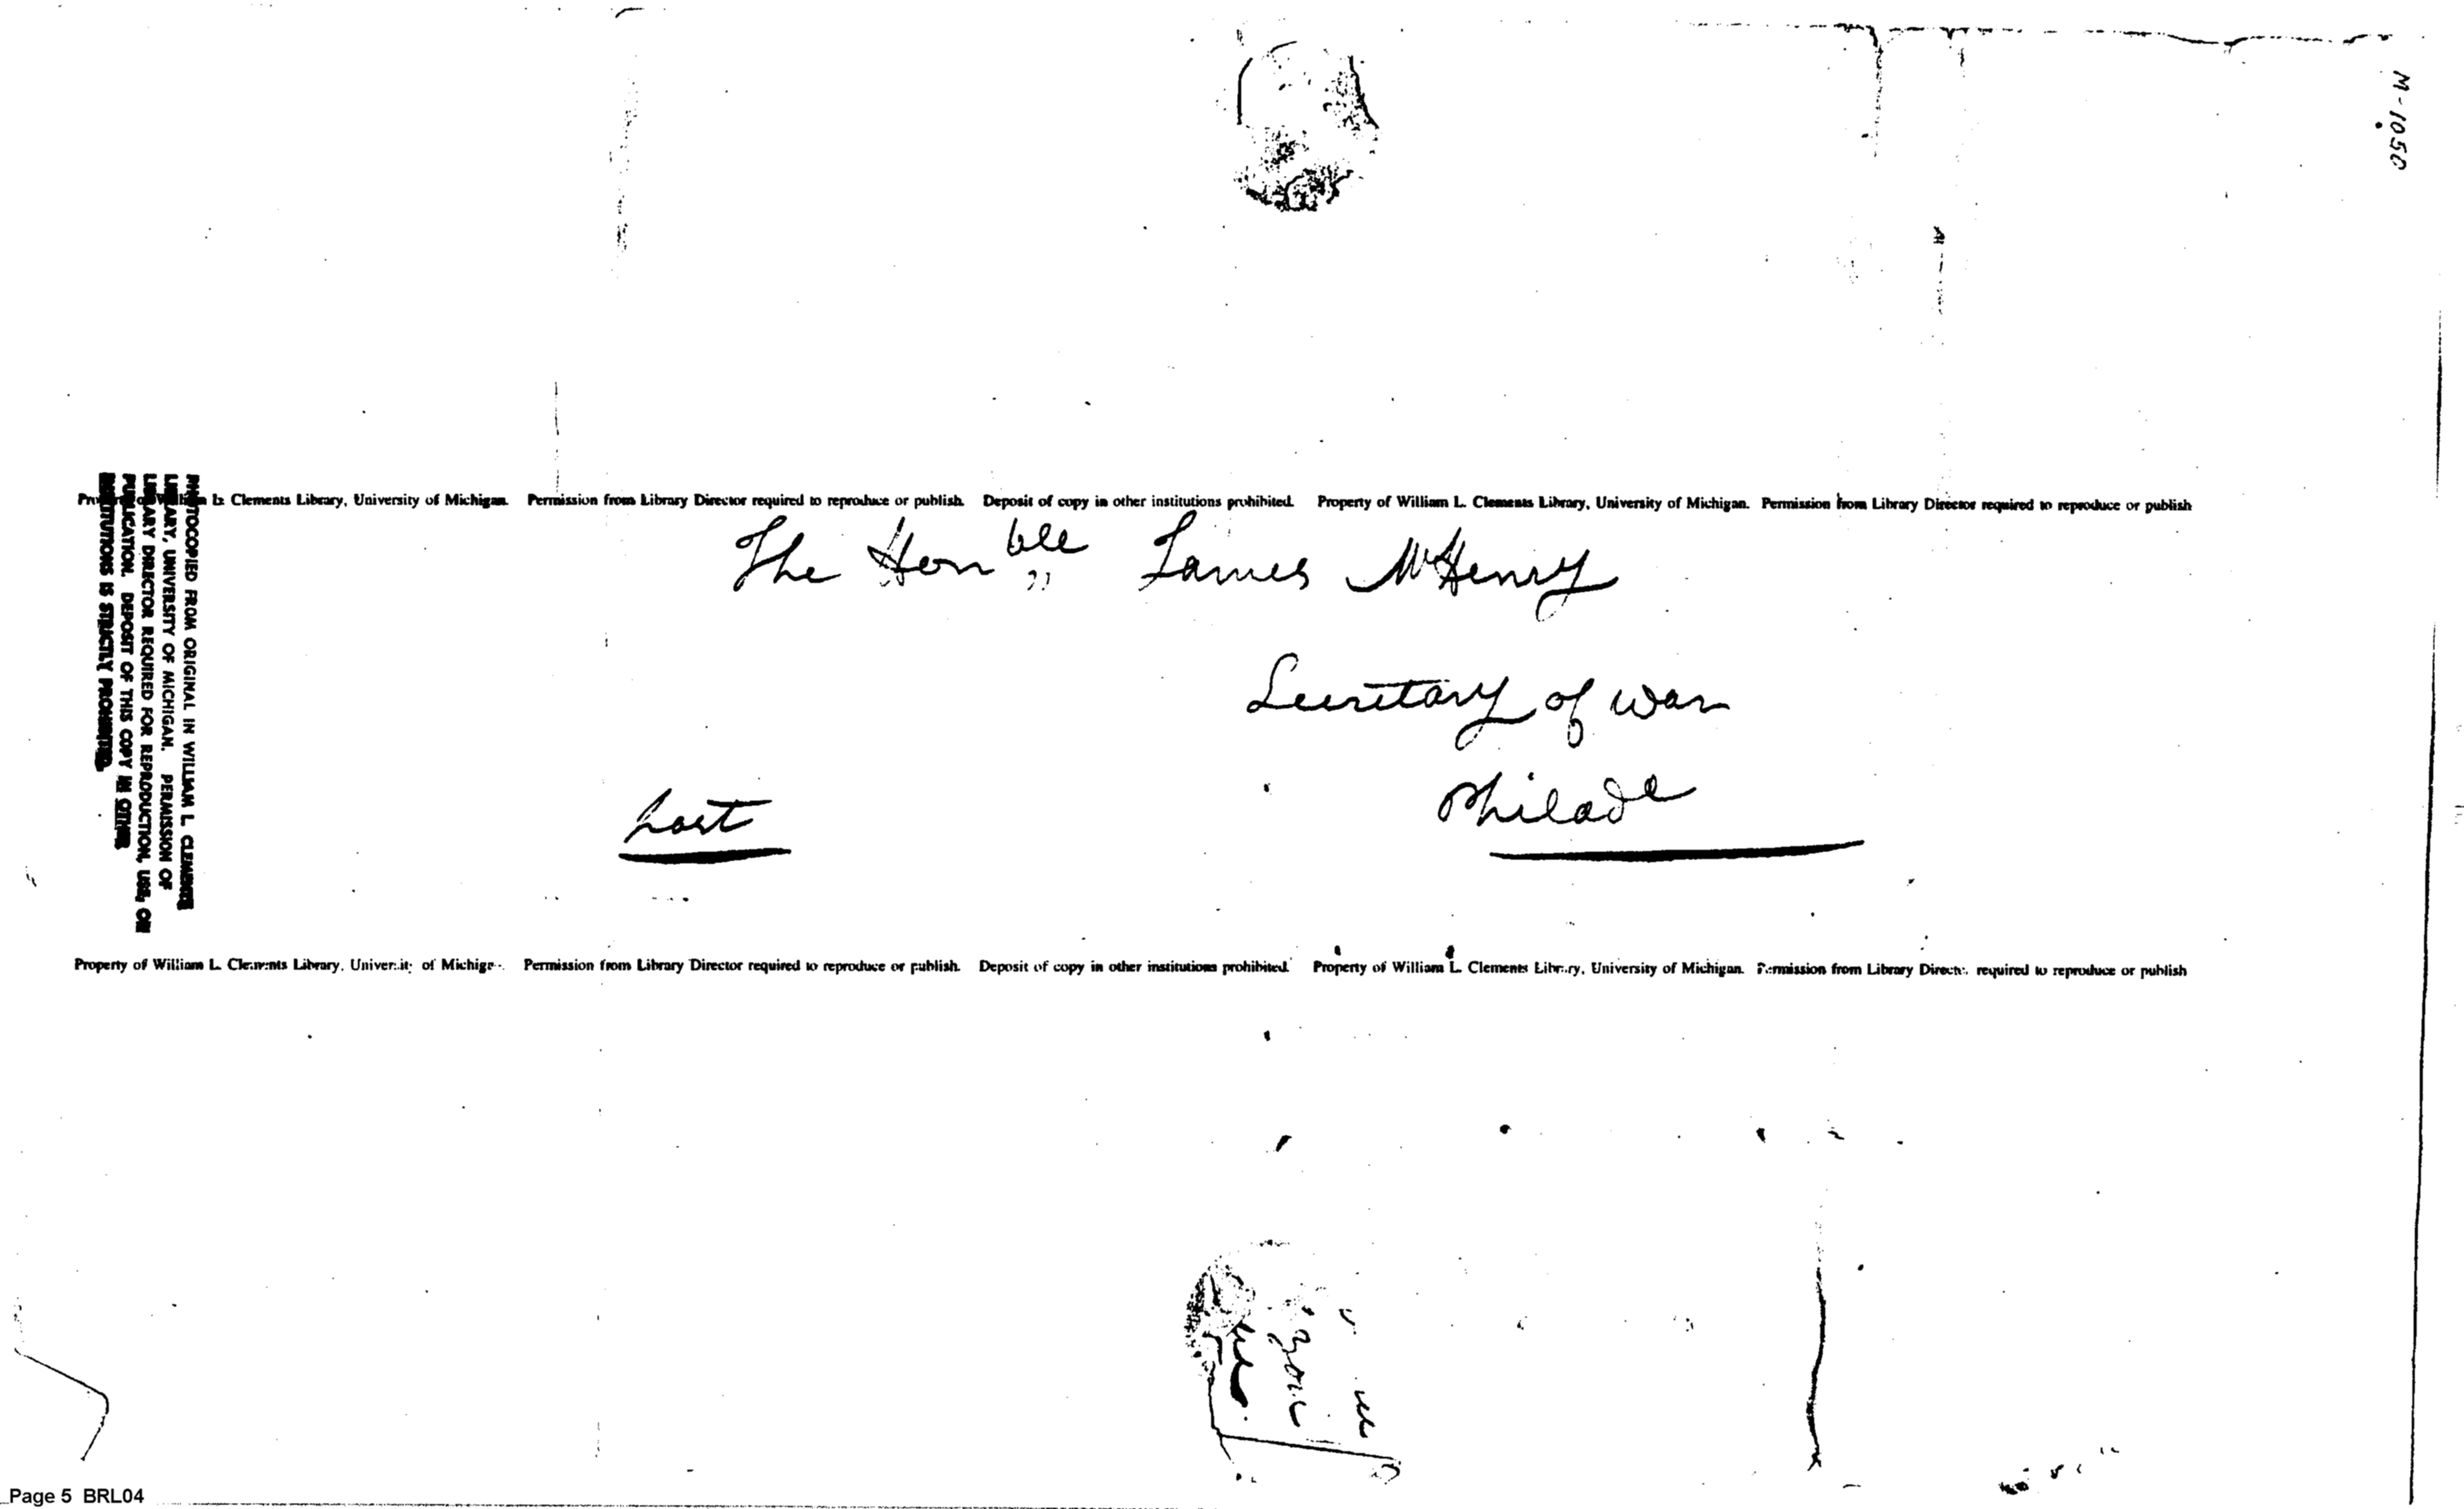 M-1050
Property of William L. Clements Library, University of Michigan. Permission from Library Director required to reproduce or publish. Deposit of copy in other institutions prohibited. Property of William L. Clements Library, University of Michigan. Permission from Library Director required to reproduce or publish
PHOTOCOPIED FROM ORIGINAL IN WILLIAM L. CLEMENTS
LIBRARY, UNIVERSITY OF MICHIGAN. PERMISSION OF
LIBRARY DIRECTOR REQUIRED FOR REPRODUCTION, USE, OR
PUBLICATION. DEPOSIT OF THIS COPY IN OTHER
INSTITUTIONS IS STRICTLY PROHIBITED.
The Honble James McHenry
Secretary of war
Philade
post
Property of William L. Clements Library, University of Michigan. Permission from Library Director required to reproduce or publish. Deposit of copy in other institutions prohibited. Property of William L. Clements Library, University of Michigan. Permission from Library Director required to reproduce or publish
Page 5 BRL04